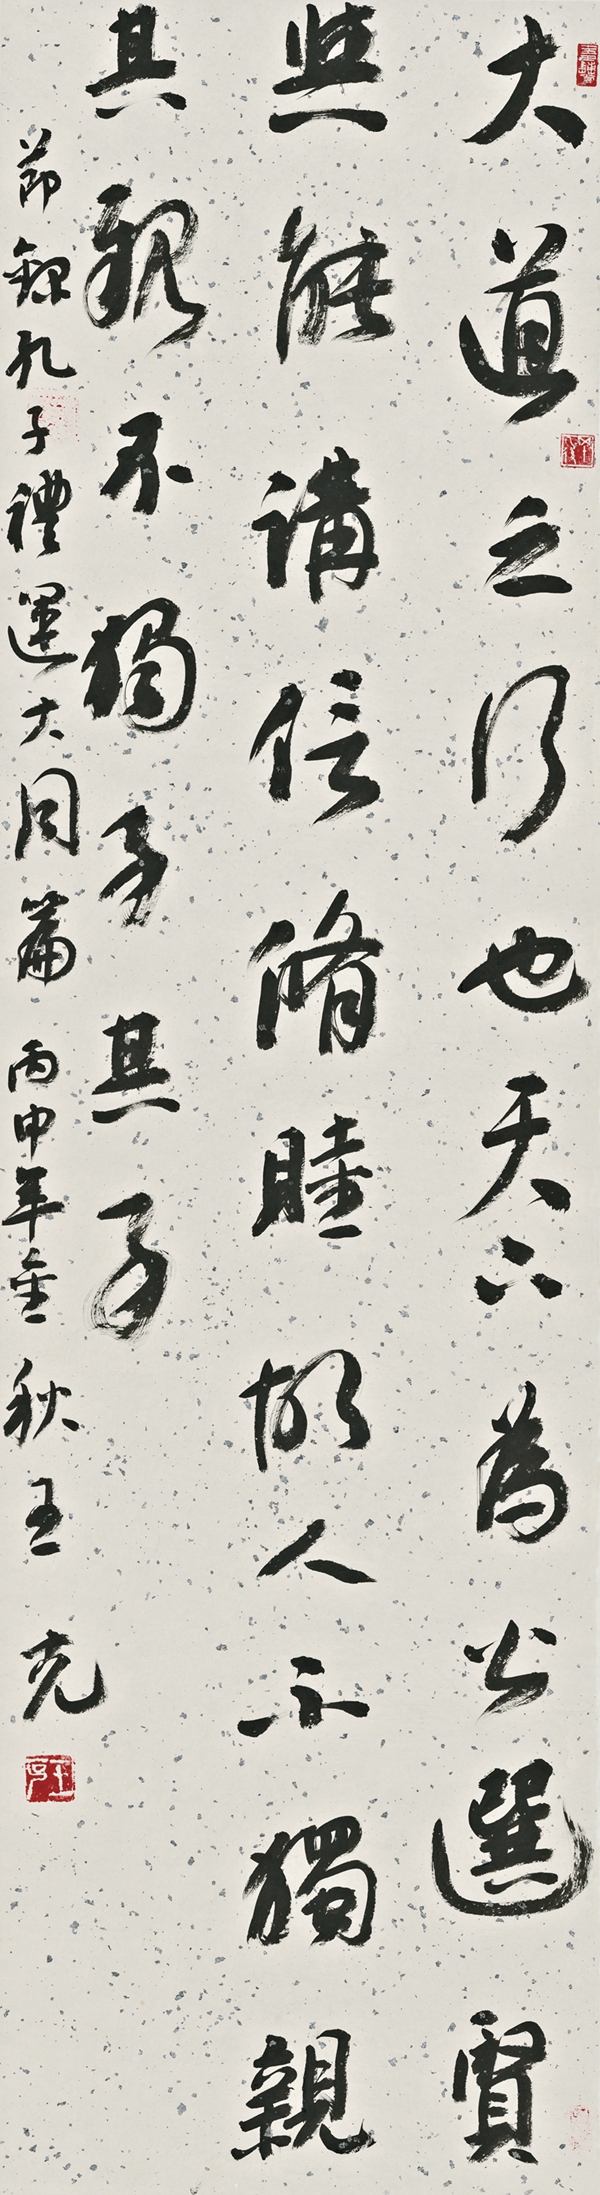 大道之行也天下為公選賢
與能講信脩睦故人不獨親
其親不獨子其子
節錄孔子禮運大同篇 丙申年金秋王克